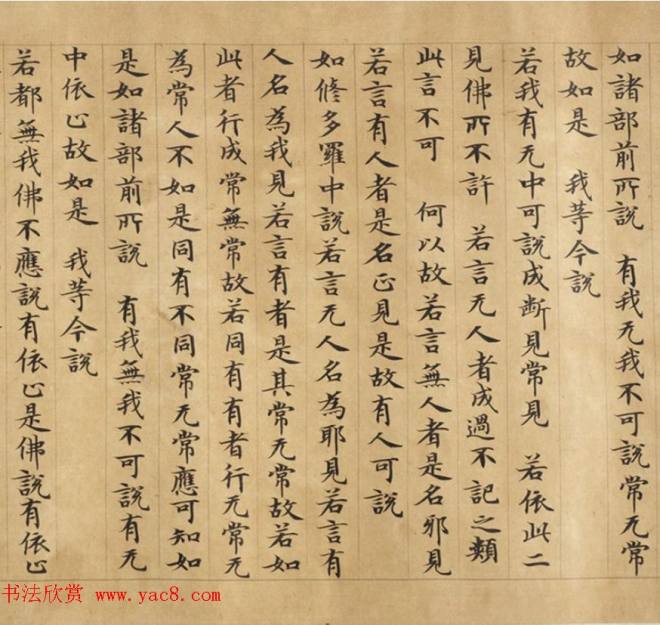 如諸部前所說　有我无我不可說常无常
故如是　我等今說
若我有无中可說成断見常見　若依此二
見佛所不許　若言无人者成過不記之類
此言不可　何以故若言無人者是名邪見
若言有人者是名正見是故有人可說
如脩多羅中說若言无人名為耶見若言有
人名為我見若言有者是其常无常故若如
此者行成常無常故若同有有者行无常无
為常人不如是同有不同常无常應可知如
是如諸部前所說　有我無我不可說有无
中依心故如是　我等今說
若都無我佛不應說有依心是佛說有依心
书法欣赏 www.yac8.com